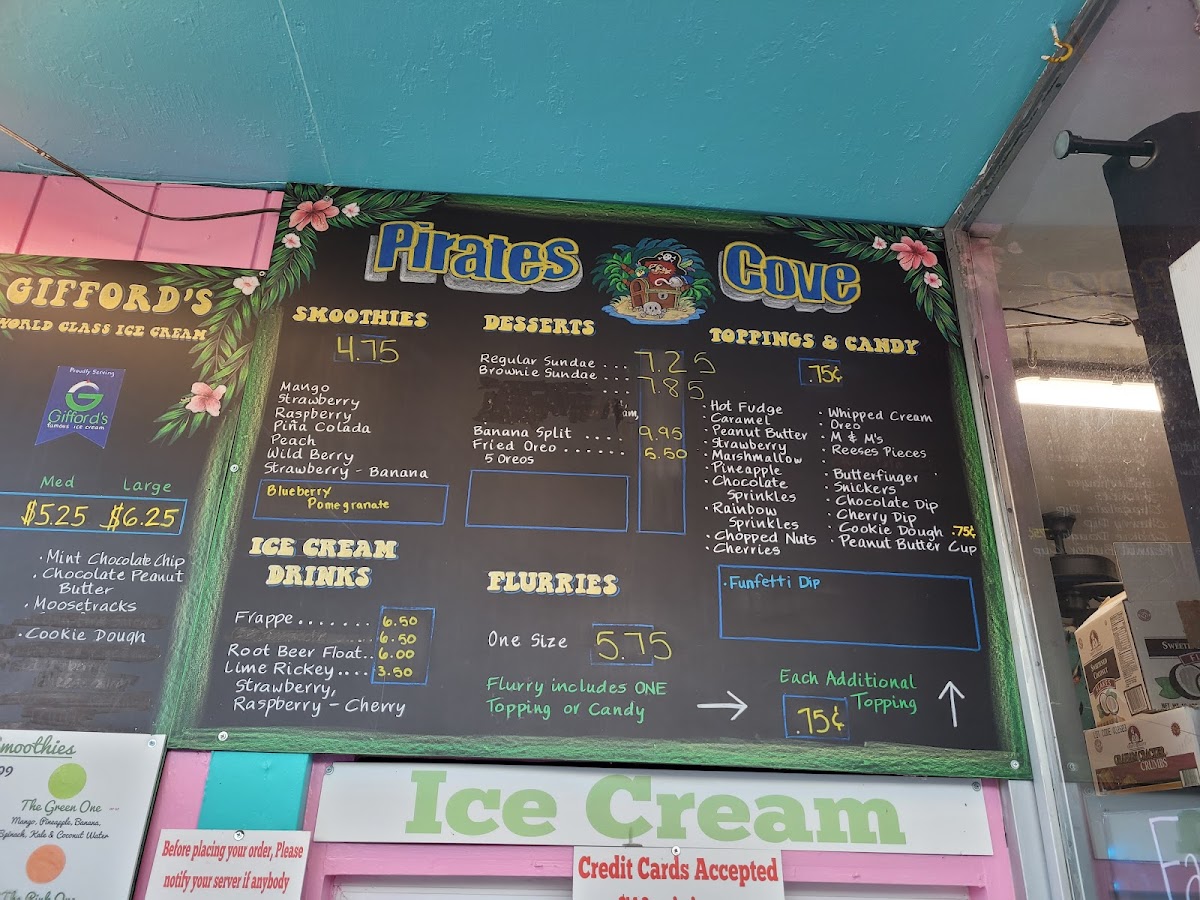 GIFFORD'S
WORLD CLASS ICE CREAM
Proudly Serving
G
Gifford's
famous ice cream
Med Large
$5.25 $6.25
· Mint Chocolate Chip
· Chocolate Peanut
Butter
· Moosetracks
· Cookie Dough
Smoothies
The Green One
Mango, Pineapple, Banana,
Spinach, Kale & Coconut Water
The Pink One
Pirates Cove
SMOOTHIES
4.75
Mango
Strawberry
Raspberry
Piña Colada
Peach
Wild Berry
Strawberry - Banana
Blueberry
Pomegranate
ICE CREAM
DRINKS
Frappe....... 6.50
6.50
Root Beer Float.. 6.00
Lime Rickey.... 3.50
Strawberry,
Raspberry - Cherry
DESSERTS
Regular Sundae ... 7.25
Brownie Sundae ... 7.85
Banana Split .... 9.95
Fried Oreo ...... 5.50
5 Oreos
FLURRIES
One Size 5.75
Flurry includes ONE
Topping or Candy
TOPPINGS & CANDY
.75¢
· Hot Fudge
· Caramel
· Peanut Butter
· Strawberry
· Marshmallow
· Pineapple
· Chocolate
Sprinkles
· Rainbow
Sprinkles
· Chopped Nuts
· Cherries
· Whipped Cream
· Oreo
· M & M's
· Reeses Pieces
· Butterfinger
· Snickers
· Chocolate Dip
· Cherry Dip
· Cookie Dough .75¢
· Peanut Butter Cup
· Funfetti Dip
Each Additional
Topping
.75¢
Ice Cream
Before placing your order, Please
notify your server if anybody
Credit Cards Accepted
GRAHAM CRACKER
CRUMBS